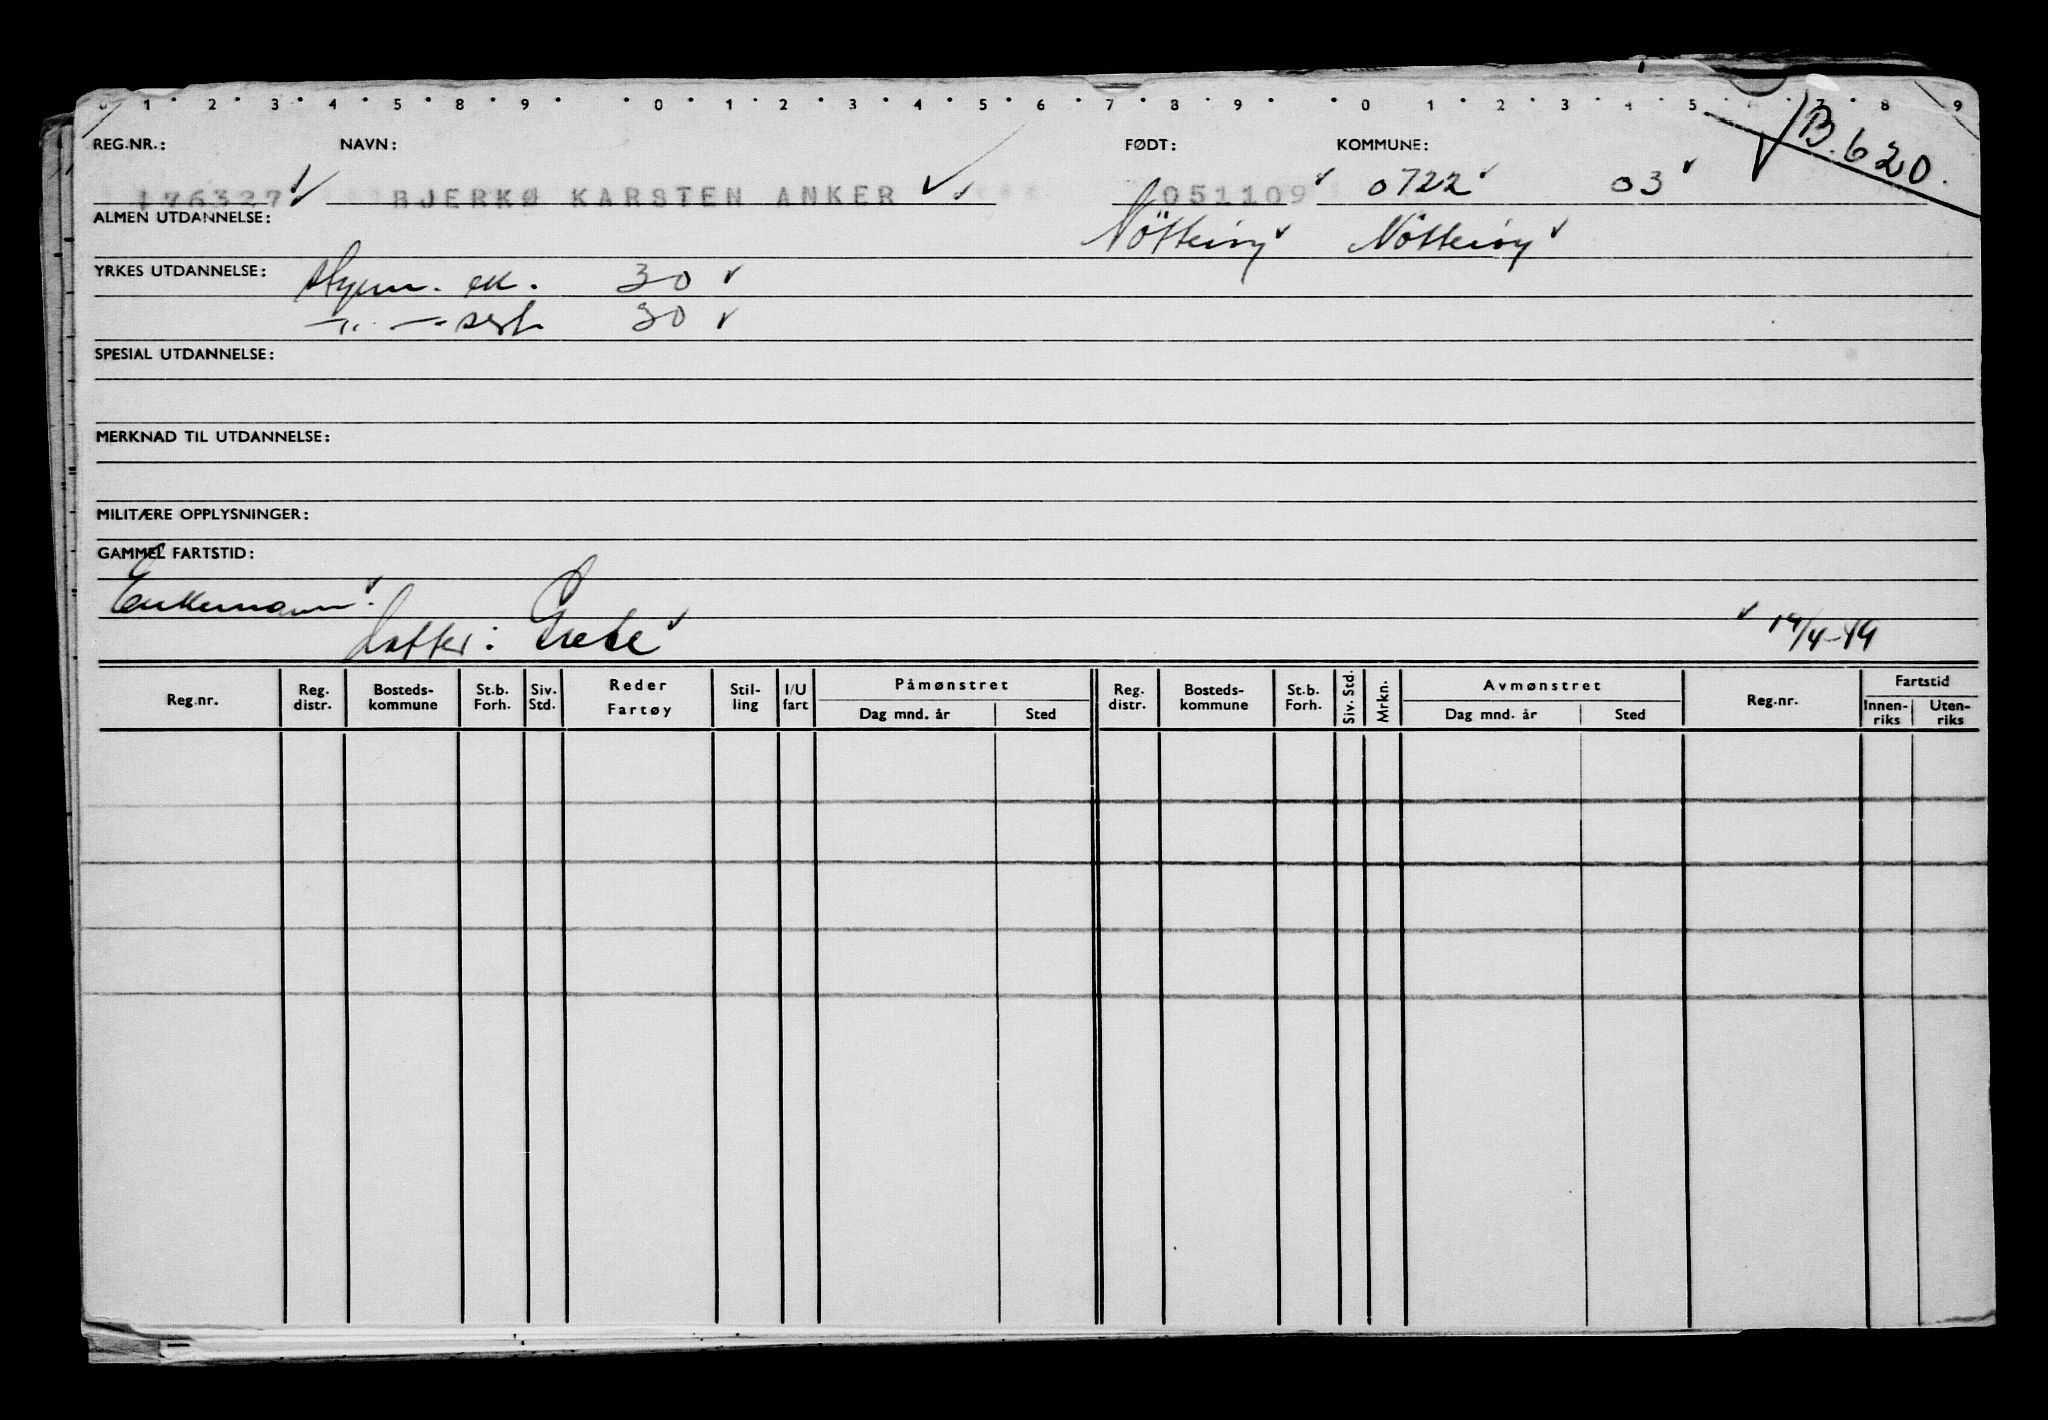 0 1 2 3 4 5 8 9 0 1 2 3 4 5 6 7 8 9 0 1 2 3 4 5 7 8 9
B.620.
REG.NR.: NAVN: FØDT: KOMMUNE:
176327 BJERKØ KARSTEN ANKER 051109 0722 03
ALMEN UTDANNELSE: Nötteröy Nötteröy
YRKES UTDANNELSE: Styrm. ex. 30
—„— sert. 30
SPESIAL UTDANNELSE:
MERKNAD TIL UTDANNELSE:
MILITÆRE OPPLYSNINGER:
GAMMEL FARTSTID:
Enkemann.
Datter: Grete 19/4-49
Reg.nr. Reg. distr. Bosteds- kommune St.b. Forh. Siv. Std. Reder Fartøy Stil- ling I/U fart Påmønstret Dag mnd. år Sted Reg. distr. Bosteds- kommune St.b. Forh. Siv. Std. Mrkn. Avmønstret Dag mnd. år Sted Reg.nr. Fartstid Innen- riks Uten- riks